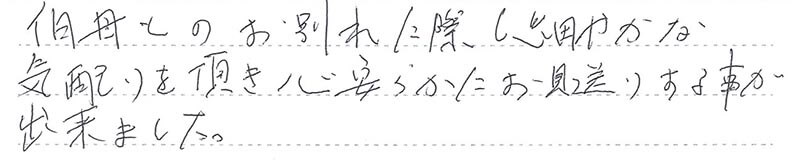 伯母とのお別れに際し心細やかな
気配りを頂き心安らかにお見送りする事が
出来ました。